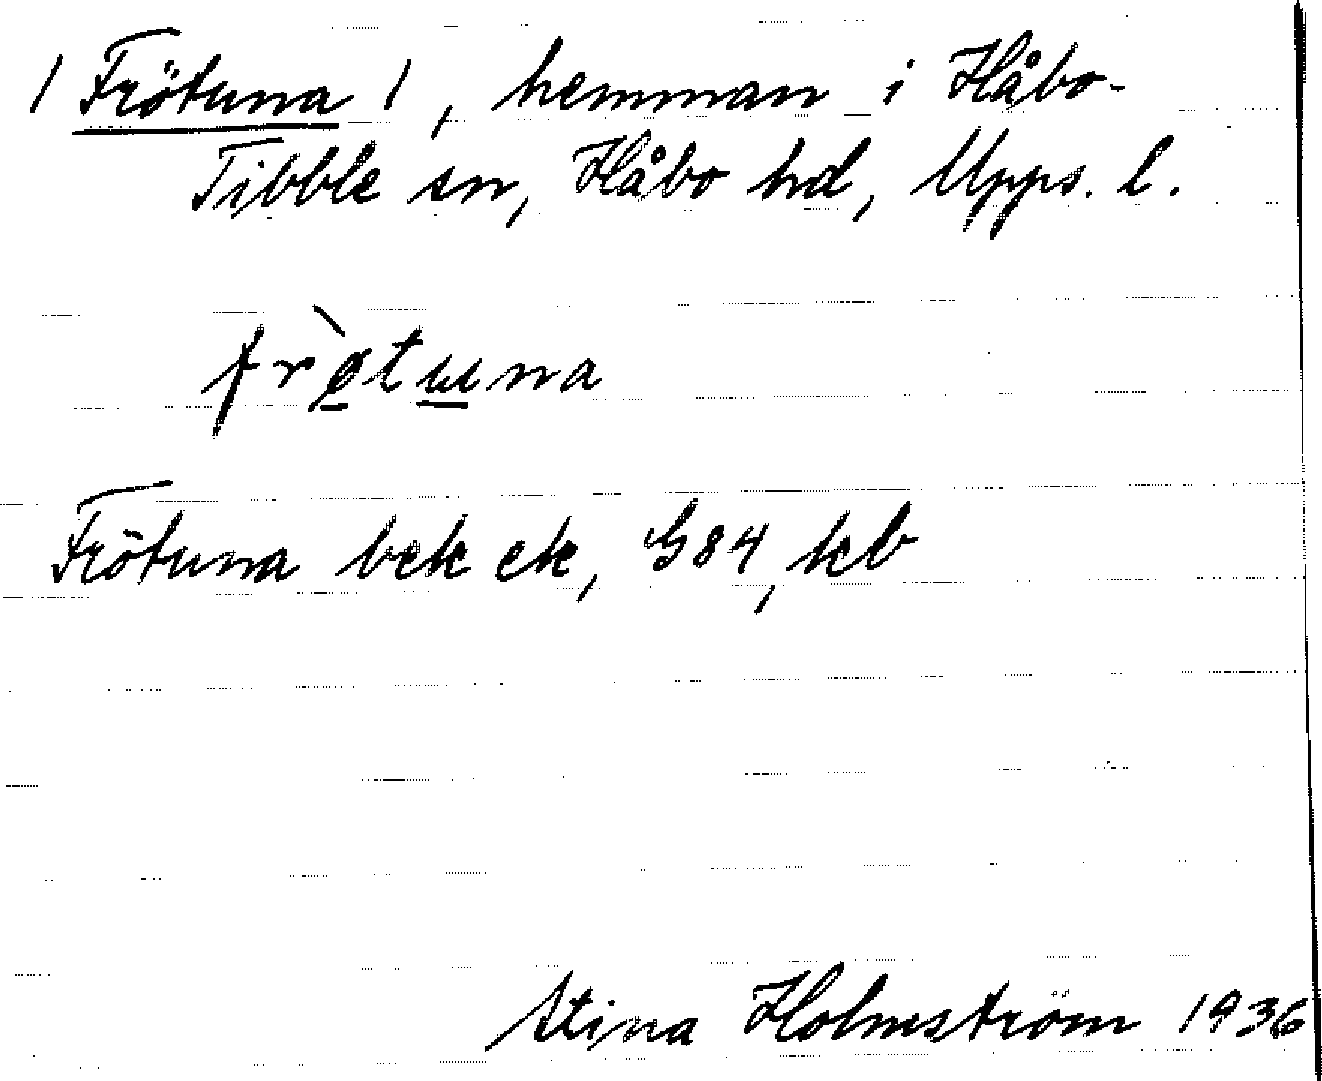 / Frötuna /, hemman i Håbo-
Tibble sn, Håbo hd, Upps. l.
frø̀tɯna
Frötuna bek ek, G84, kb
Stina Holmström 1936